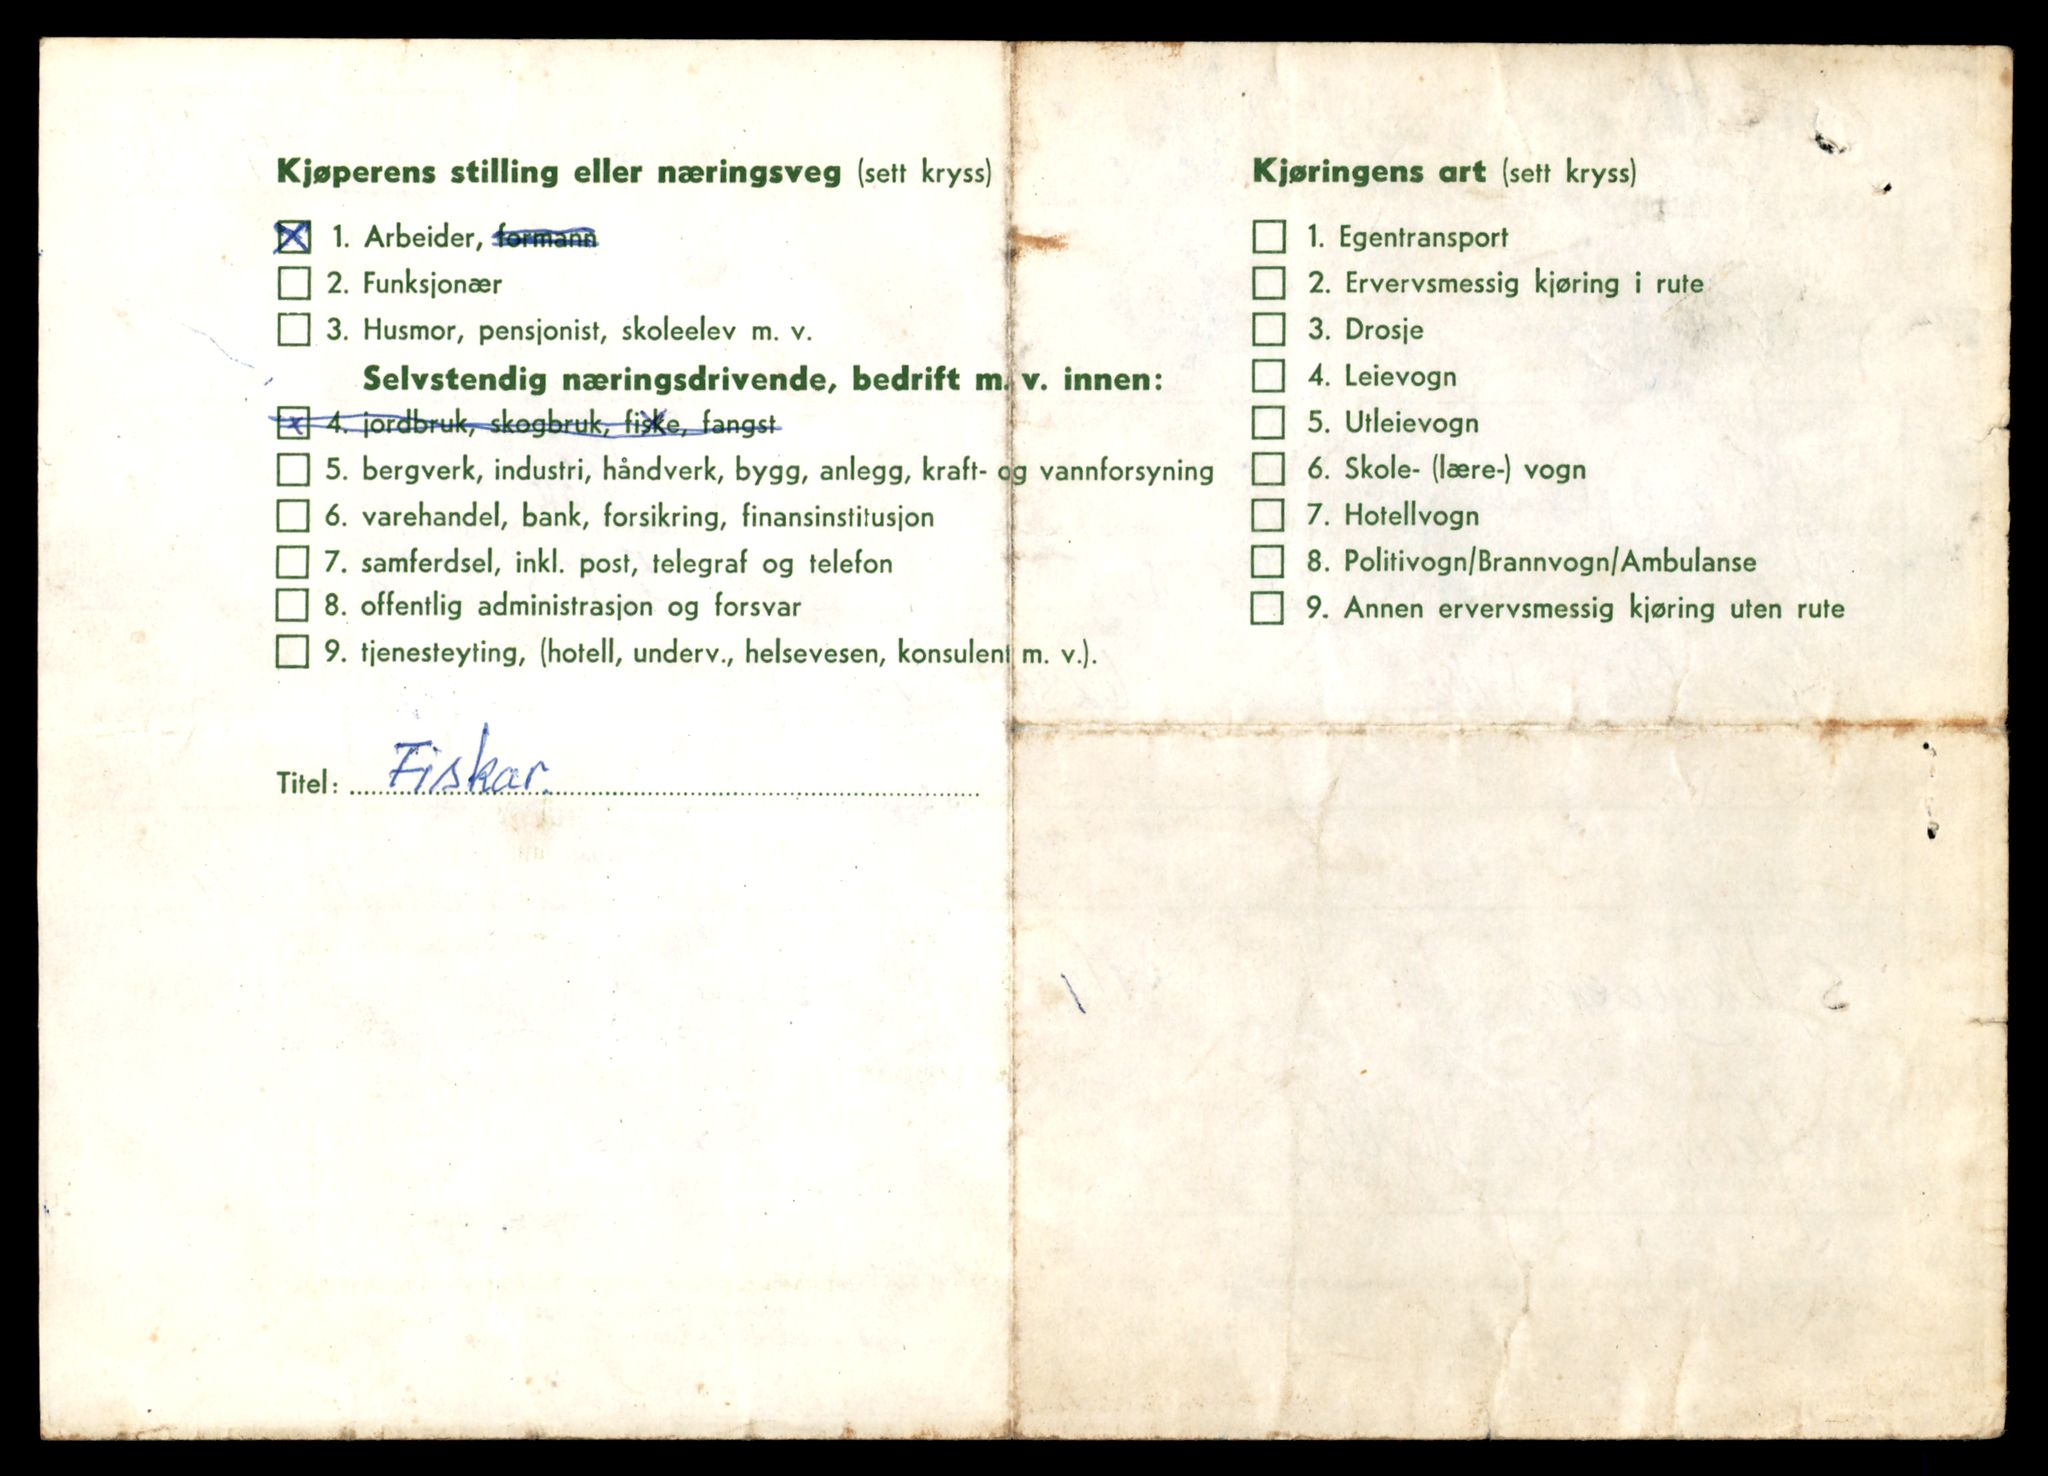 Kjøperens stilling eller næringsveg (sett kryss)
1. Arbeider, formann
2. Funksjonær
3. Husmor, pensjonist, skoleelev m. v.
Selvstendig næringsdrivende, bedrift m. v. innen:
4. jordbruk, skogbruk, fiske, fangst
5. bergverk, industri, håndverk, bygg, anlegg, kraft- og vannforsyning
6. varehandel, bank, forsikring, finansinstitusjon
7. samferdsel, inkl. post, telegraf og telefon
8. offentlig administrasjon og forsvar
9. tjenesteyting, (hotell, underv., helsevesen, konsulent m. v.).
Titel: Fiskar.
Kjøringens art (sett kryss)
1. Egentransport
2. Ervervsmessig kjøring i rute
3. Drosje
4. Leievogn
5. Utleievogn
6. Skole- (lære-) vogn
7. Hotellvogn
8. Politivogn/Brannvogn/Ambulanse
9. Annen ervervsmessig kjøring uten rute